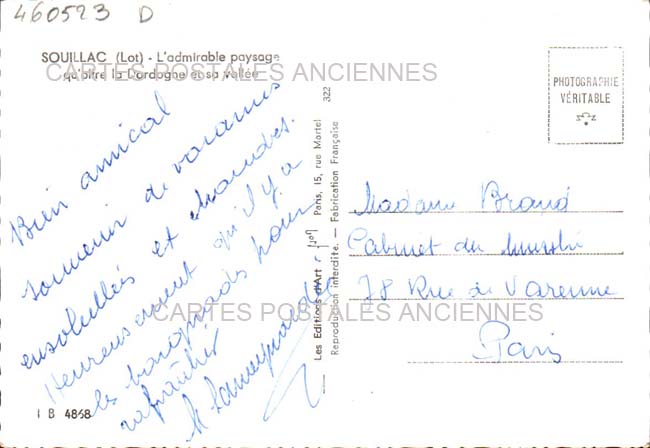 460523 D
SOUILLAC (Lot) - L'admirable paysage
qu'offre la Dordogne et sa vallée
CARTES POSTALES ANCIENNES
PHOTOGRAPHIE
VÉRITABLE
Bien amical
souvenir de vacances
ensoleillées et chaudes.
Heureusement qu'il y a
les baignades pour
rafraîchir
Les Editions d'Art Paris, 15, rue Martel 322
Reproduction interdite. - Fabrication Française
Madame Braud
Cabinet du
78 Rue de Varenne
Paris
CARTES POSTALES ANCIENNES
I B 4868